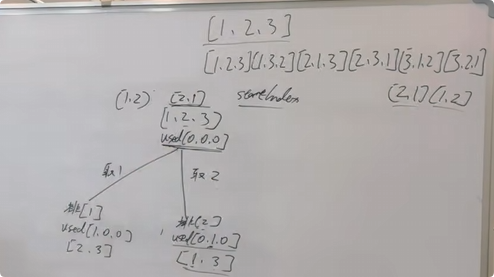 [1、2、3]
[1、2、3][1、3、2][2、1、3][2、3、1][3、1、2][3、2、1]
(1、2) [2、1] startIndex [2、1][1、2]
[1、2、3]
used[0、0、0]
取1 取2
排列[1] 排列[2]
used[1、0、0] used[0、1、0]
[2、3] [1、3]